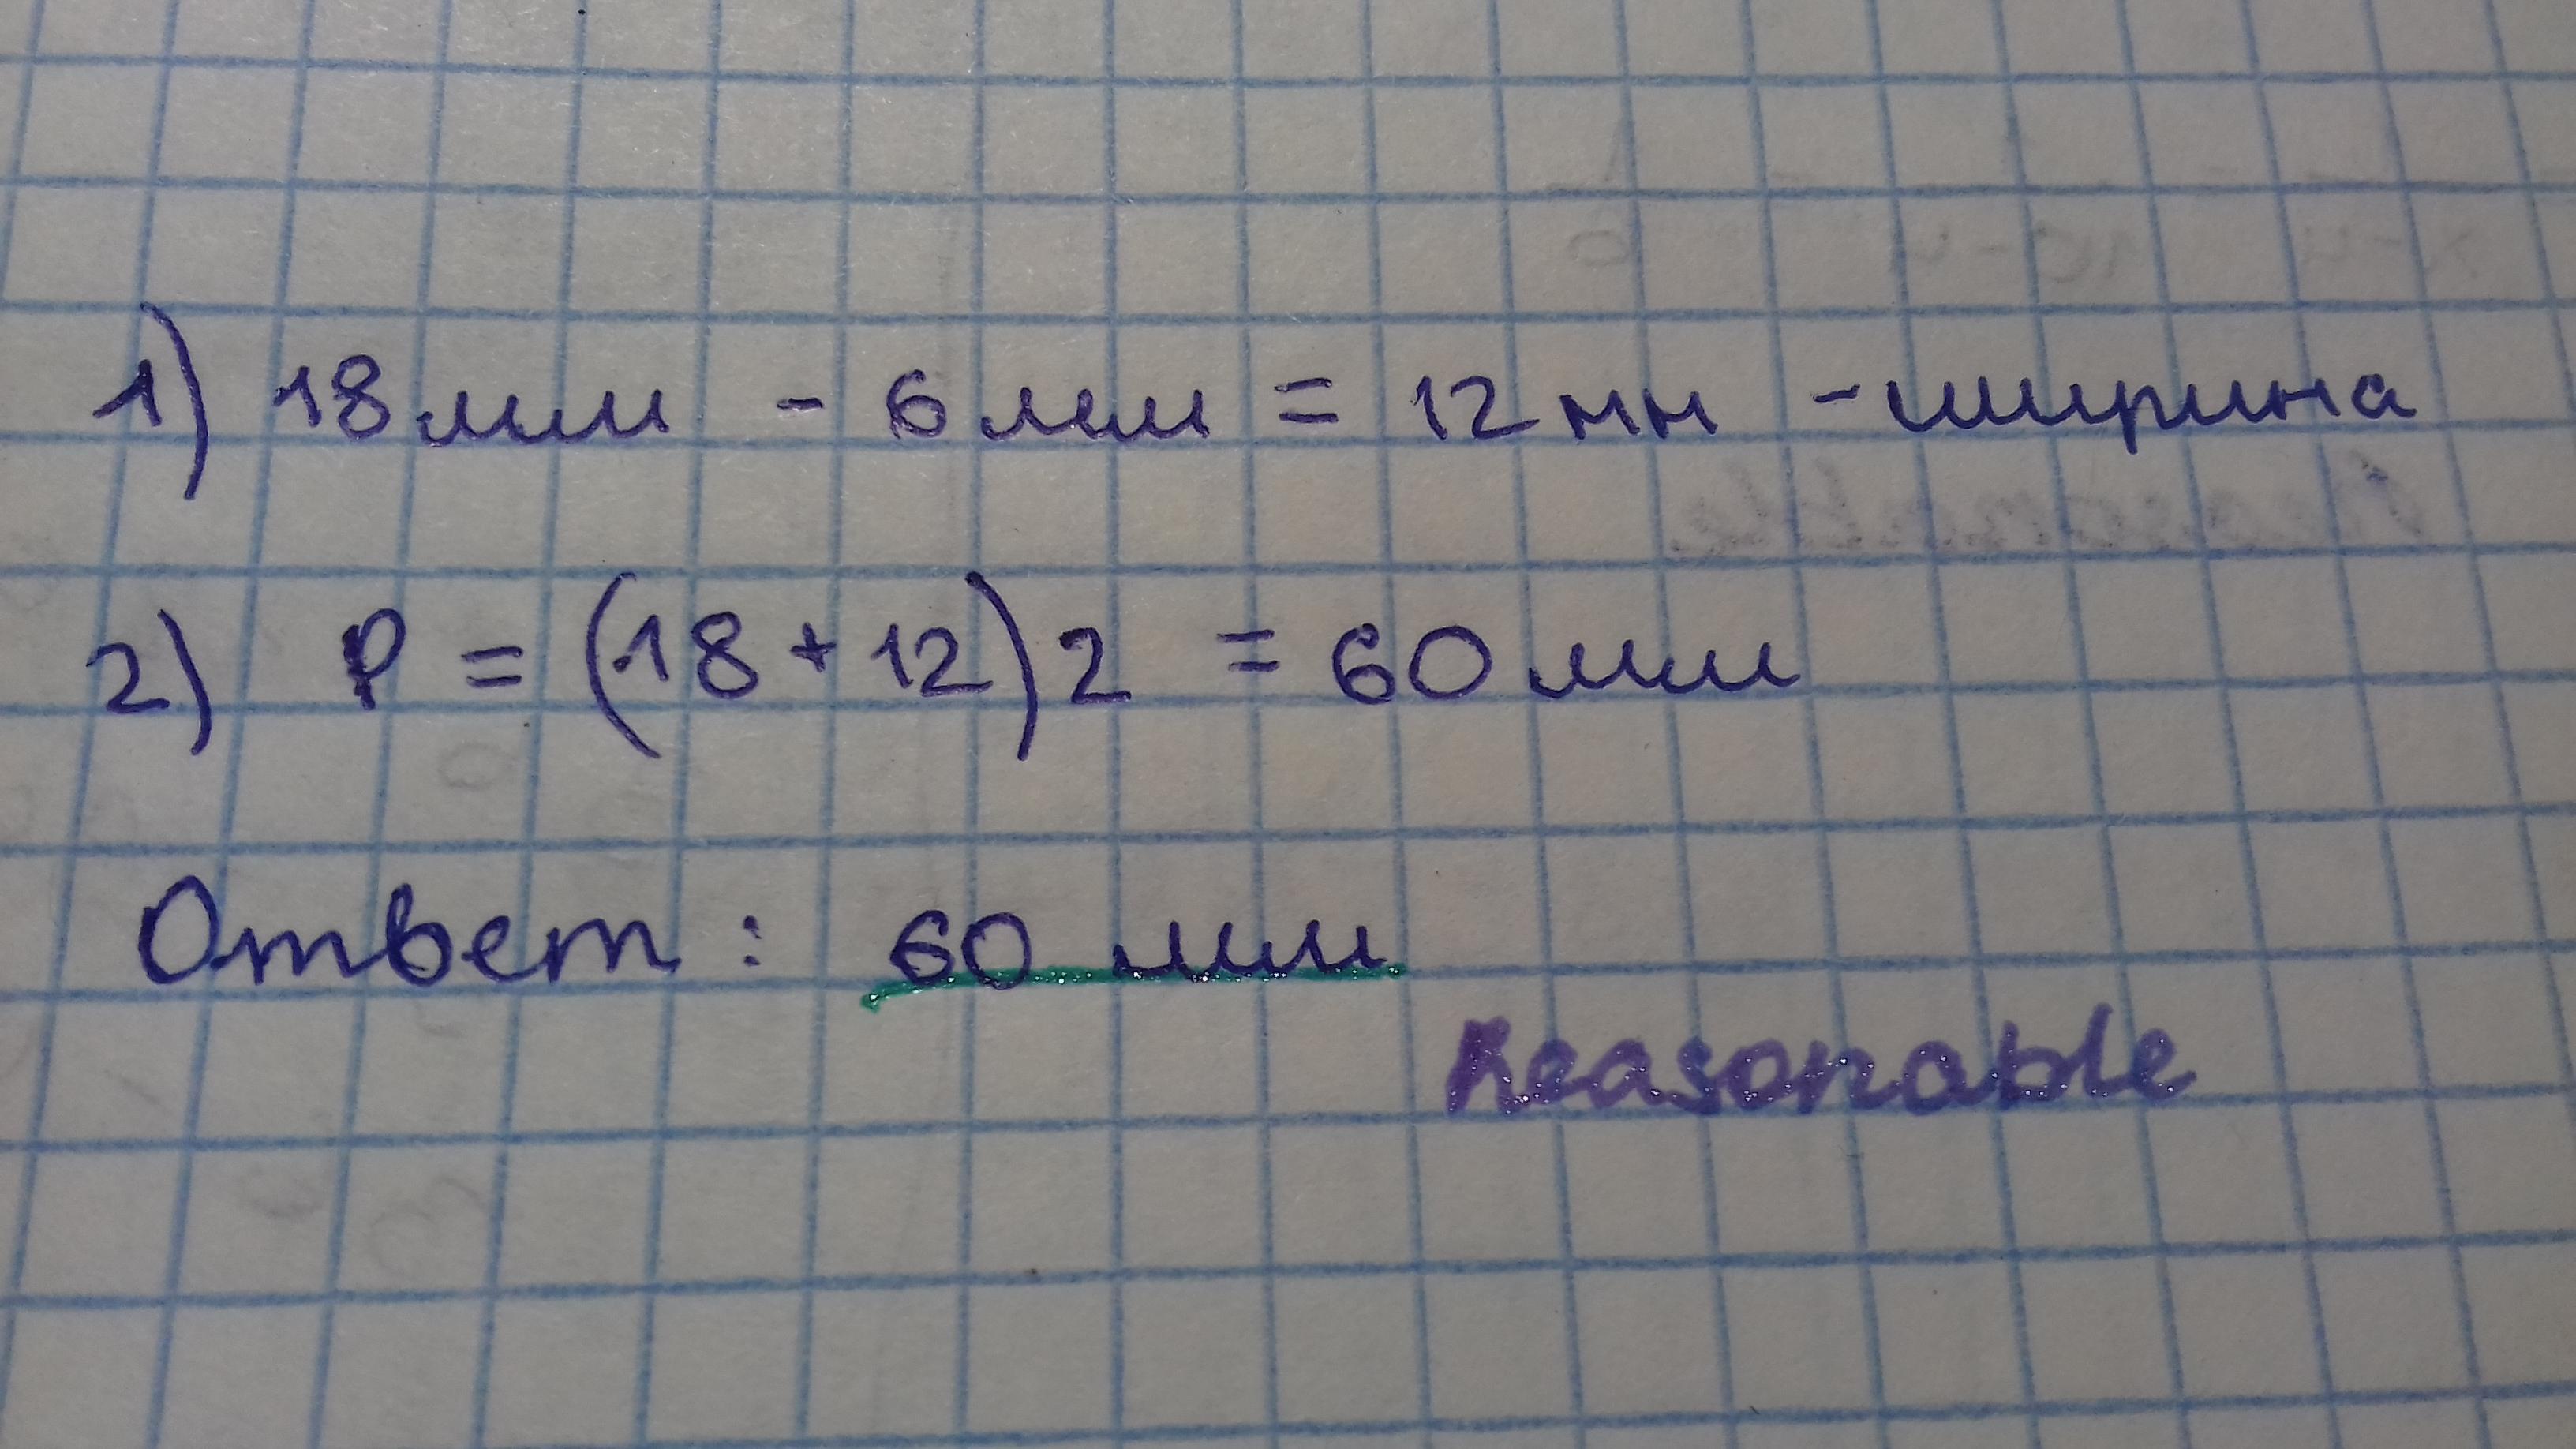 1) 18 мм - 6 мм = 12 мм - ширина
2) P = (18 + 12) 2 = 60 мм
Ответ: 60 мм
Reasonable